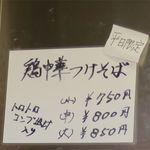 平日限定
鶏中華つけそば
トロトロ
コンブ水付
入り
(小) ¥750円
(中) ¥800円
(大) ¥850円